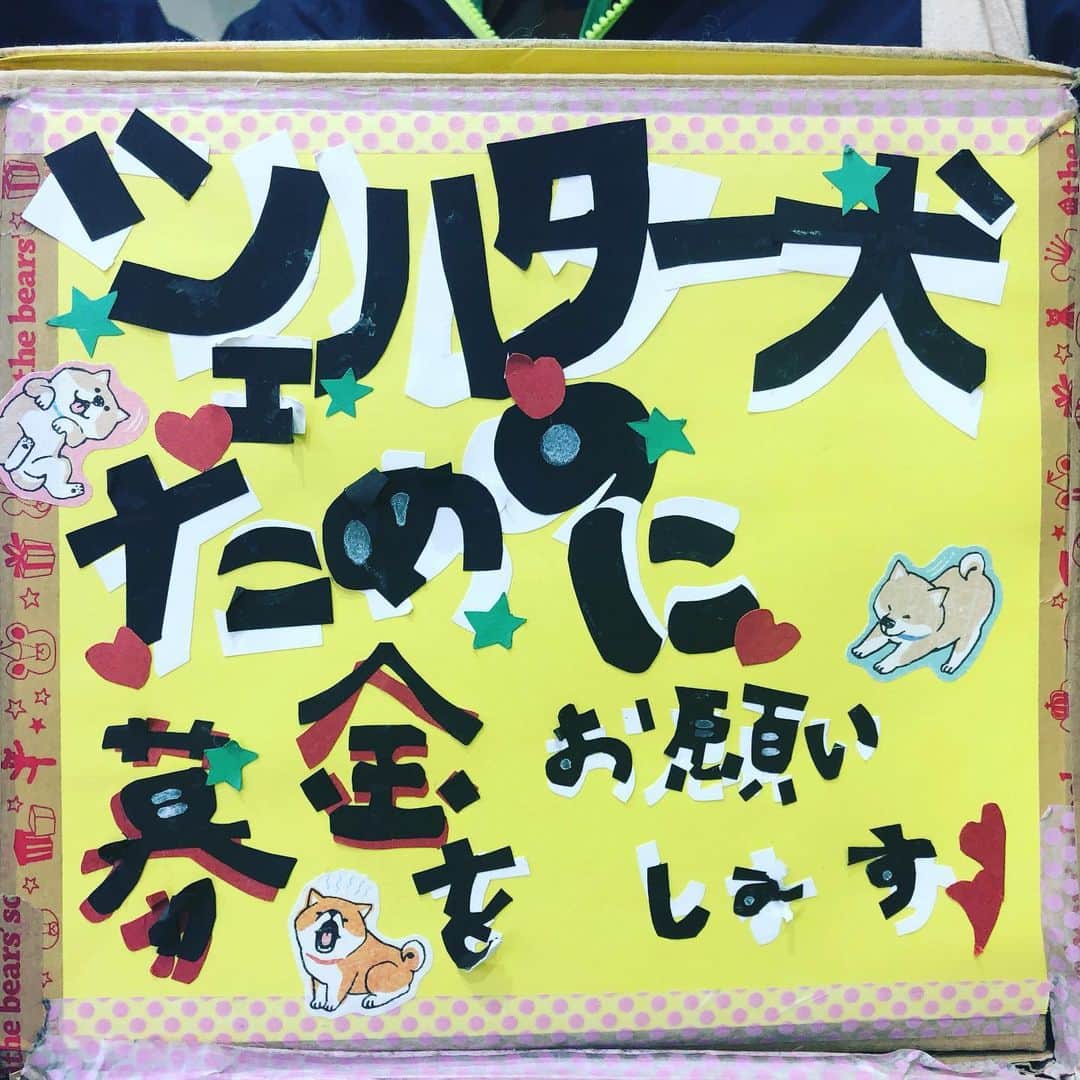 シェルター犬
の
ために
募金を
お願い
します
the bears'
the bears